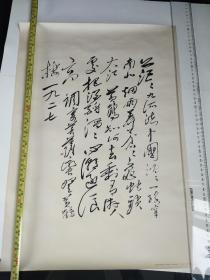 茫茫九派流中國沉沉一线穿
南北烟雨莽苍苍龟蛇锁
大江黄鹤知何去剩有游人
处把酒酹滔滔心潮逐浪
高 调寄菩萨蛮登黄鹤
楼一九二七